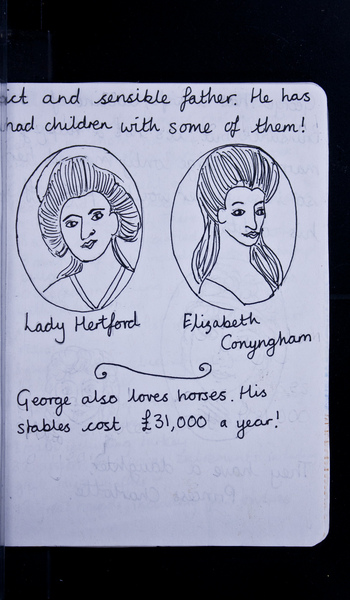 and sensible father. He has
had children with some of them!
Lady Hertford
Elizabeth
Conyngham
George also loves horses. His
stables cost £31,000 a year!
They have a daughter
Princess Charlotte